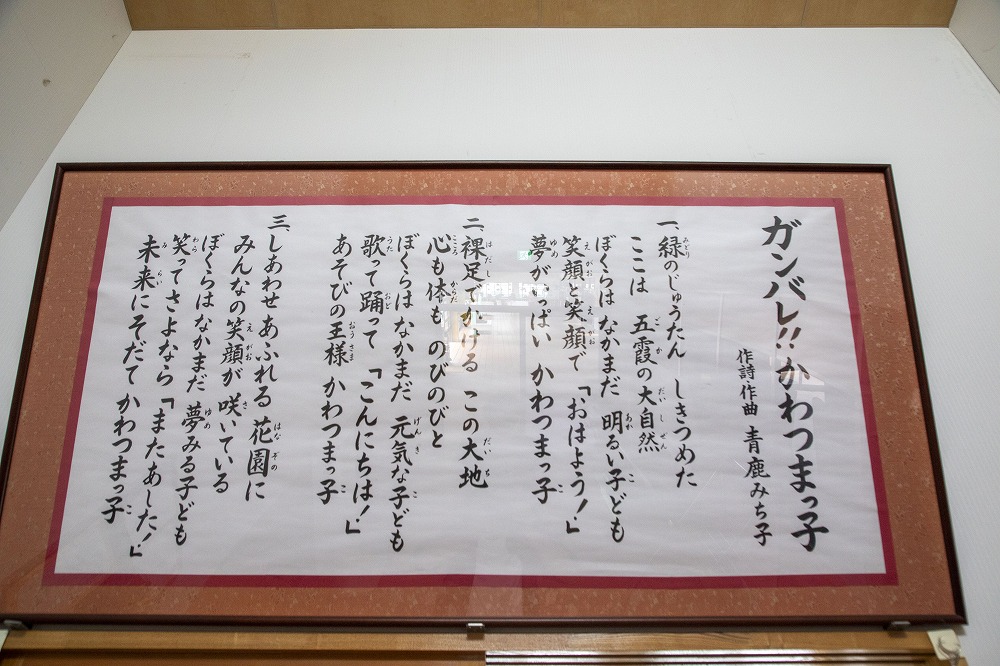 ガンバレ!!かわつまっ子
作詩・作曲 青鹿みち子
一、緑のじゅうたん しきつめた
ここは 五霞の大自然
ぼくらは なかまだ 明るい子ども
笑顔と笑顔で「おはよう!」
夢がいっぱい かわつまっ子
二、裸足でかける この大地
心も体も のびのびと
ぼくらは なかまだ 元気な子ども
歌って踊って「こんにちは!」
あそびの王様 かわつまっ子
三、しあわせ あふれる 花園に
みんなの笑顔が 咲いている
ぼくらはなかまだ 夢みる子ども
笑ってさよなら「またあした!」
未来にそだて かわつまっ子